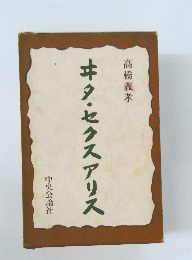 高橋義孝
ヰタ・セクスアリス
中央公論社